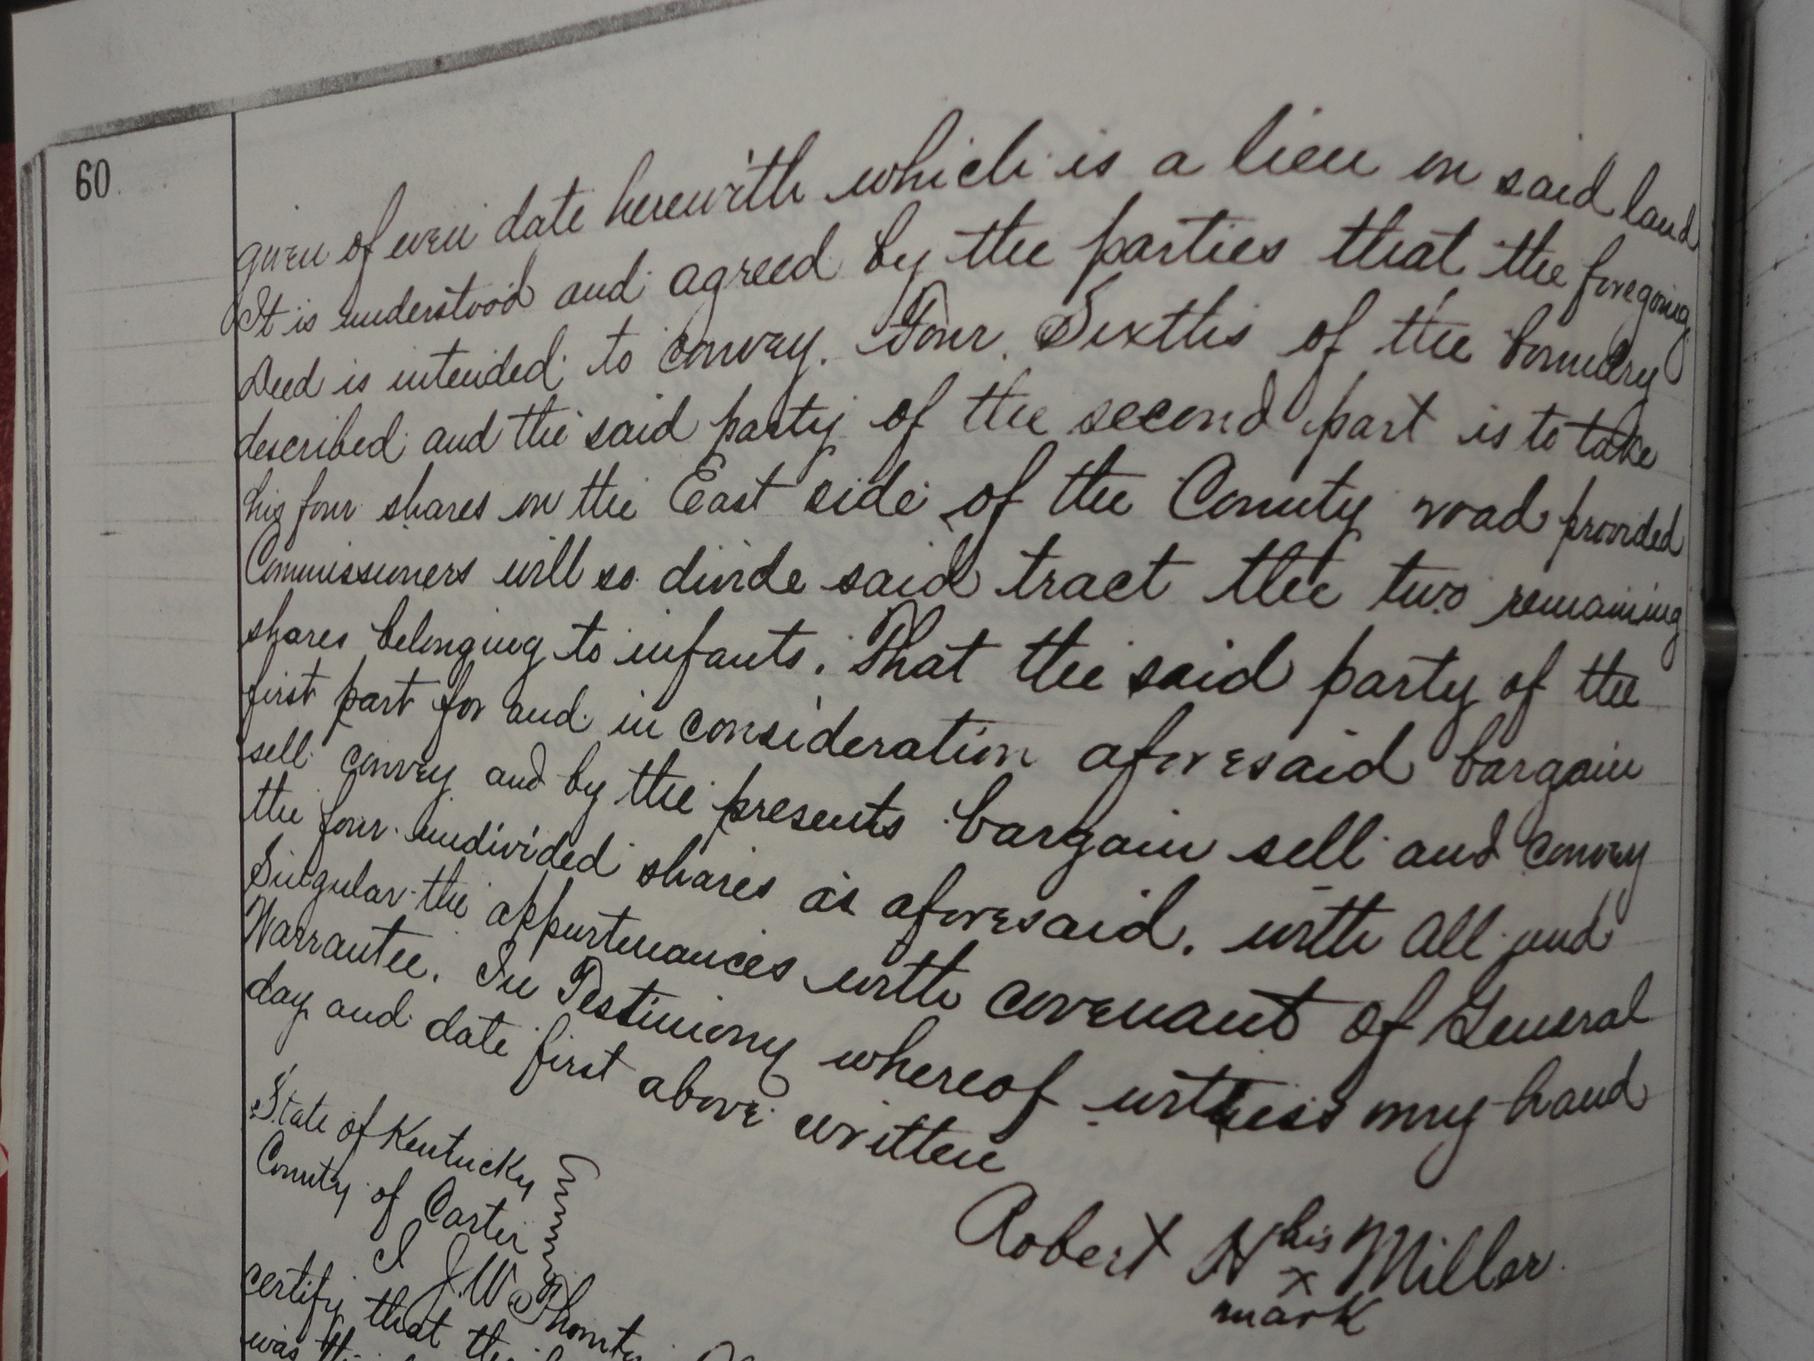 60
given of even date herewith which is a lien on said land
It is understood and agreed by the parties that the foregoing
Deed is intended to convey. Four Sixths of the boundry
described and the said party of the second part is to take
his four shares on the East side of the County road provided
Commissioners will so divide said tract the two remaining
shares belonging to infants. That the said party of the
first part for and in consideration aforesaid bargain
sell convey and by the presents bargain sell and convey
the four undivided shares as aforesaid. with all and
Singular the appurtenances with covenant of General
Warrantee. In Testimony whereof witness my hand
day and date first above written
Robert N his x mark Miller
State of Kentucky
County of Carter
I J. W.
certify that the
was